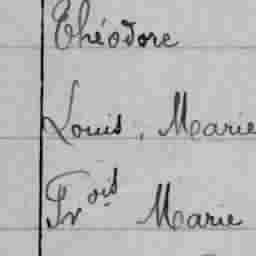 Théodore
Louis, Marie
Frois Marie